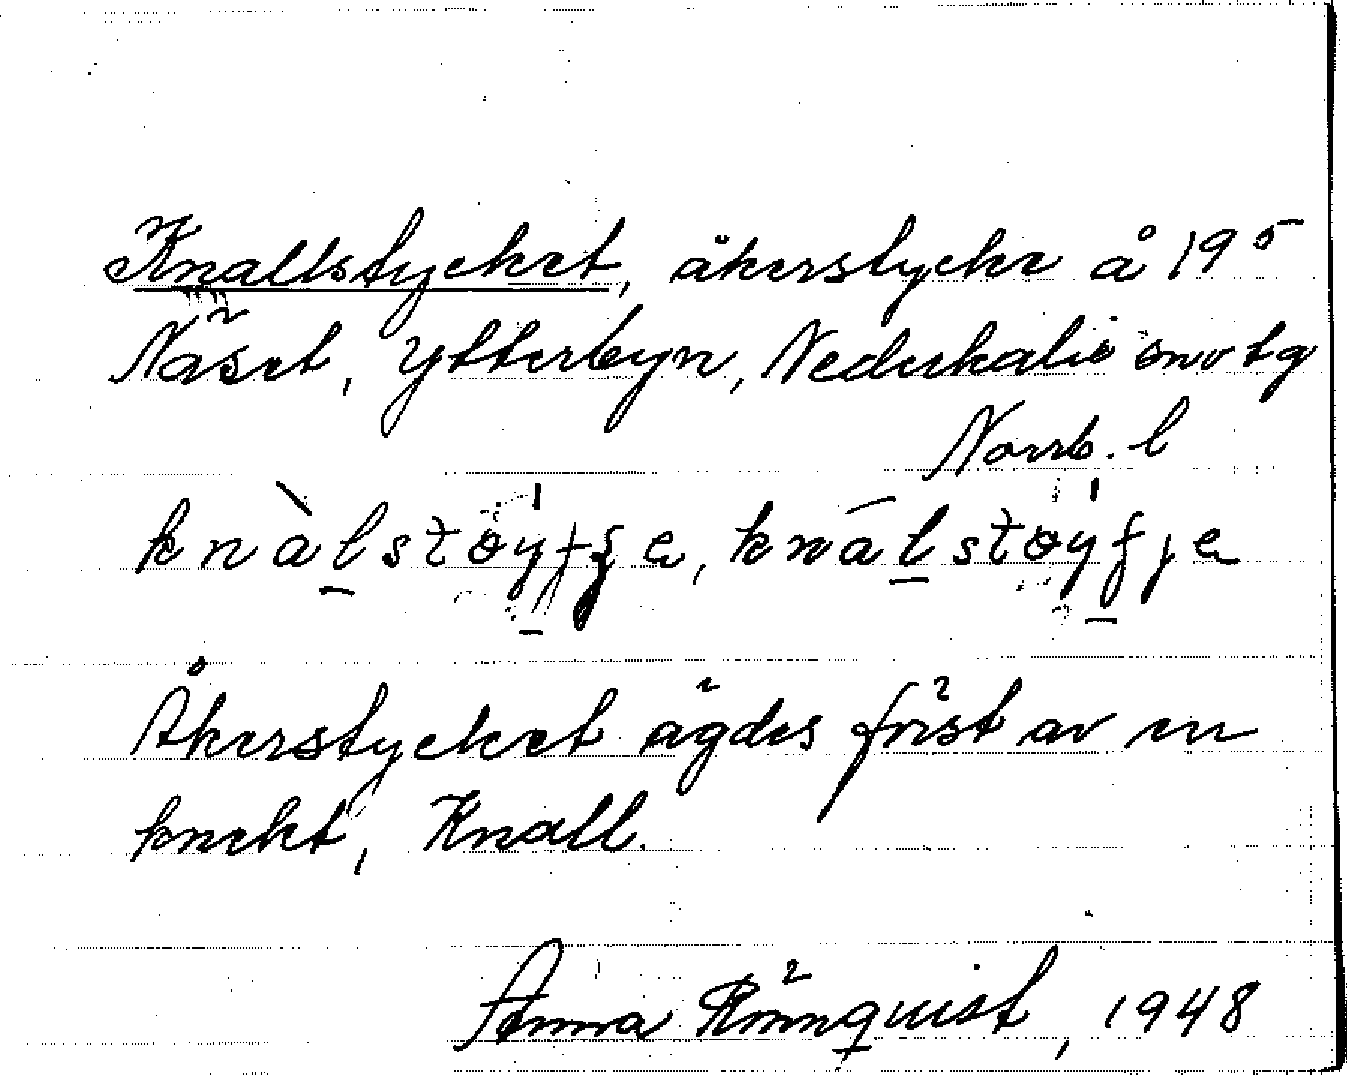 Knallstycket, åkerstycke å 19⁵
Näset, Ytterbyn, Nederkalix
Norrb. l
Åkerstycket ägdes först av en
knekt, Knall.
Anna Rönnquist, 1948